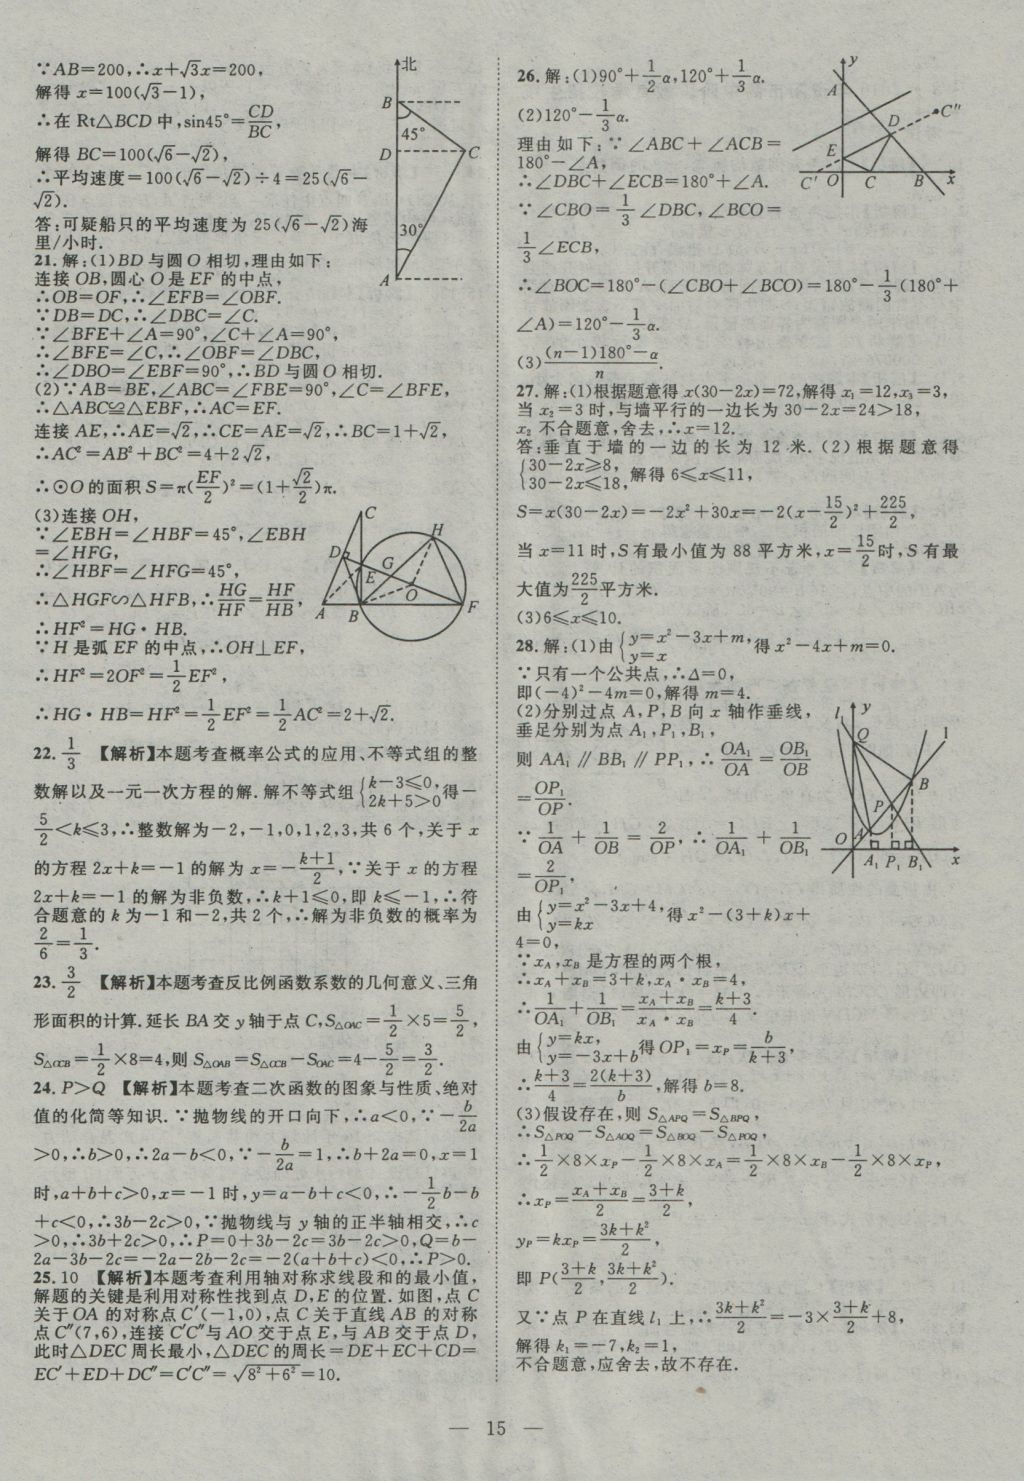 ∵AB=200,∴x+√3x=200,
解得 x=100(√3-1),
∴在 Rt△BCD 中,sin45°=CD/BC,
解得 BC=100(√6-√2),
∴平均速度=100(√6-√2)÷4=25(√6-
√2).
答:可疑船只的平均速度为 25(√6-√2)海
里/小时.
北
B
45°
D
C
30°
A
21.解:(1)BD 与圆 O 相切,理由如下:
连接 OB,圆心 O 是 EF 的中点,
∴OB=OF,∴∠EFB=∠OBF.
∵DB=DC,∴∠DBC=∠C.
∵∠BFE+∠A=90°,∠C+∠A=90°,
∴∠BFE=∠C,∴∠OBF=∠DBC,
∴∠DBO=∠EBF=90°,∴BD与圆O相切.
(2)∵AB=BE,∠ABC=∠FBE=90°,∠C=∠BFE,
∴△ABC≌△EBF,∴AC=EF.
连接 AE,∴AE=√2,∴CE=AE=√2,∴BC=1+√2,
∴AC²=AB²+BC²=4+2√2,
∴⊙O的面积 S=π(EF/2)²=(1+√2/2)π.
(3)连接 OH,
∵∠EBH=∠HBF=45°,∠EBH
=∠HFG,
∴∠HBF=∠HFG=45°,
∴△HGF∽△HFB,∴HG/HF=HF/HB,
∴HF²=HG·HB.
∵H 是弧 EF 的中点,∴OH⊥EF,
∴HF²=2OF²=1/2EF²,
∴HG·HB=HF²=1/2EF²=1/2AC²=2+√2.
C
H
D
G
E
O
A
B
F
22.1/3 【解析】本题考查概率公式的应用、不等式组的整
数解以及一元一次方程的解.解不等式组{k-3≤0, 2k+5>0得-
5/2<k≤3,∴整数解为-2,-1,0,1,2,3,共 6 个,关于 x
的方程 2x+k=-1 的解为 x=-(k+1)/2,∵关于 x 的方程
2x+k=-1 的解为非负数,∴k+1≤0,即 k≤-1,∴符
合题意的 k 为-1 和-2,共 2 个,∴解为非负数的概率为
2/6=1/3.
23.3/2 【解析】本题考查反比例函数系数的几何意义、三角
形面积的计算.延长 BA交 y轴于点 C,S△OAC=1/2×5=5/2,
S△OCB=1/2×8=4,则 S△OAB=S△OCB-S△OAC=4-5/2=3/2.
24.P>Q 【解析】本题考查二次函数的图象与性质、绝对
值的化简等知识.∵抛物线的开口向下,∴a<0,∵-b/2a
>0,∴b>0,∴2a-b<0,∵-b/2a=1,∴b+2a=0,x=1
时,a+b+c>0,x=-1 时,y=a-b+c<0,∴-1/2b-b
+c<0,∴3b-2c>0,∵抛物线与 y 轴的正半轴相交,∴c
>0,∴3b+2c>0,∴P=0+3b-2c=3b-2c>0,Q=b-
2a-3b-2c=-2a-2b-2c=-2(a+b+c)<0,∴P>0.
25.10 【解析】本题考查利用轴对称求线段和的最小值,
解题的关键是利用对称性找到点 D,E 的位置.如图,点 C
关于 OA 的对称点 C′(-1,0),点 C 关于直线 AB 的对称
点 C″(7,6),连接 C′C″与 AO 交于点 E,与 AB 交于点 D,
此时△DEC 周长最小,△DEC 的周长=DE+EC+CD=
EC′+ED+DC″=C′C″=√(8²+6²)=10.
26.解:(1)90°+1/2α,120°+1/3α.
(2)120°-1/3α.
理由如下:∵∠ABC+∠ACB=
180°-∠A,
∴∠DBC+∠ECB=180°+∠A.
∵∠CBO=1/3∠DBC,∠BCO=
1/3∠ECB,
∴∠BOC=180°-(∠CBO+∠BCO)=180°-1/3(180°+
∠A)=120°-1/3α.
(3)((n-1)180°-α)/n.
y
A
C″
D
E
C′
O
C
B
x
27.解:(1)根据题意得 x(30-2x)=72,解得 x₁=12,x₃=3,
当 x₂=3 时,与墙平行的一边长为 30-2x=24>18,
x₂ 不合题意,舍去,∴x=12.
答:垂直于墙的一边的长为 12 米.(2)根据题意得
{30-2x≥8, 30-2x≤18,解得 6≤x≤11,
S=x(30-2x)=-2x²+30x=-2(x-15/2)²+225/2,
当 x=11 时,S 有最小值为 88 平方米,x=15/2时,S 有最
大值为225/2平方米.
(3)6≤x≤10.
28.解:(1)由{y=x²-3x+m, y=x得 x²-4x+m=0.
∵只有一个公共点,∴Δ=0,
即(-4)²-4m=0,解得 m=4.
(2)分别过点 A,P,B 向 x 轴作垂线,
垂足分别为点 A₁,P₁,B₁,
则 AA₁∥BB₁∥PP₁,∴OA₁/OA=OB₁/OB
=OP₁/OP.
∵1/OA+1/OB=2/OP,∴1/OA₁+1/OB₁
=2/OP₁,
l₁
y
l
Q
B
P
A
O
A₁ P₁ B₁
x
由{y=x²-3x+4, y=kx 得 x²-(3+k)x+
4=0,
∵xA,xB 是方程的两个根,
∴xA+xB=3+k,xA·xB=4,
∴1/OA₁+1/OB₁=(xA+xB)/(xA·xB)=(k+3)/4.
由{y=kx, y=-3x+b得 OP₁=xP=b/(k+3),
∴(k+3)/4=2(k+3)/b,解得 b=8.
(3)假设存在,则 S△APQ=S△BPQ,
∴S△POQ-S△AOQ=S△BOQ-S△POQ,
∴1/2×8×xP-1/2×8×xA=1/2×8×xB-1/2×8×xP,
∴xP=(xA+xB)/2=(3+k)/2,
yP=kxP=(3k+k²)/2,
即 P((3+k)/2,(3k+k²)/2).
又∵点 P 在直线 l₁ 上,∴(3k+k²)/2=-3×(3+k)/2+8,
解得 k₁=-7,k₂=1,
不合题意,应舍去,故不存在.
— 15 —